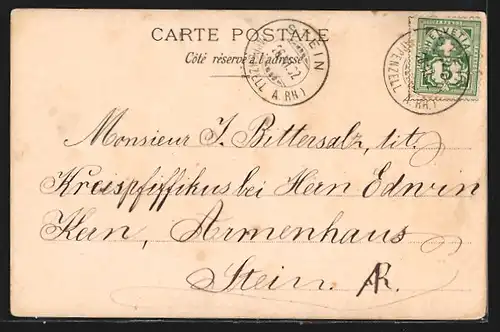 CARTE POSTALE
Côté réservé à l'adresse
STEIN
(APPENZELL A. RH.)
HELVETIA
5
APPENZELL A. RH.)
Monsieur J. Bittersalz, tit.
Kreispfiffikus bei Herrn Edwin
Kern, Armenhaus
Stein. AR.